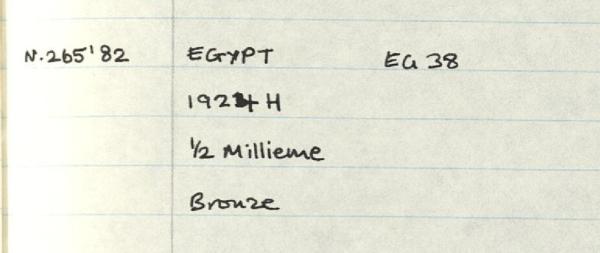 N.265'82 EGYPT EG 38
1924 H
1/2 Millieme
Bronze